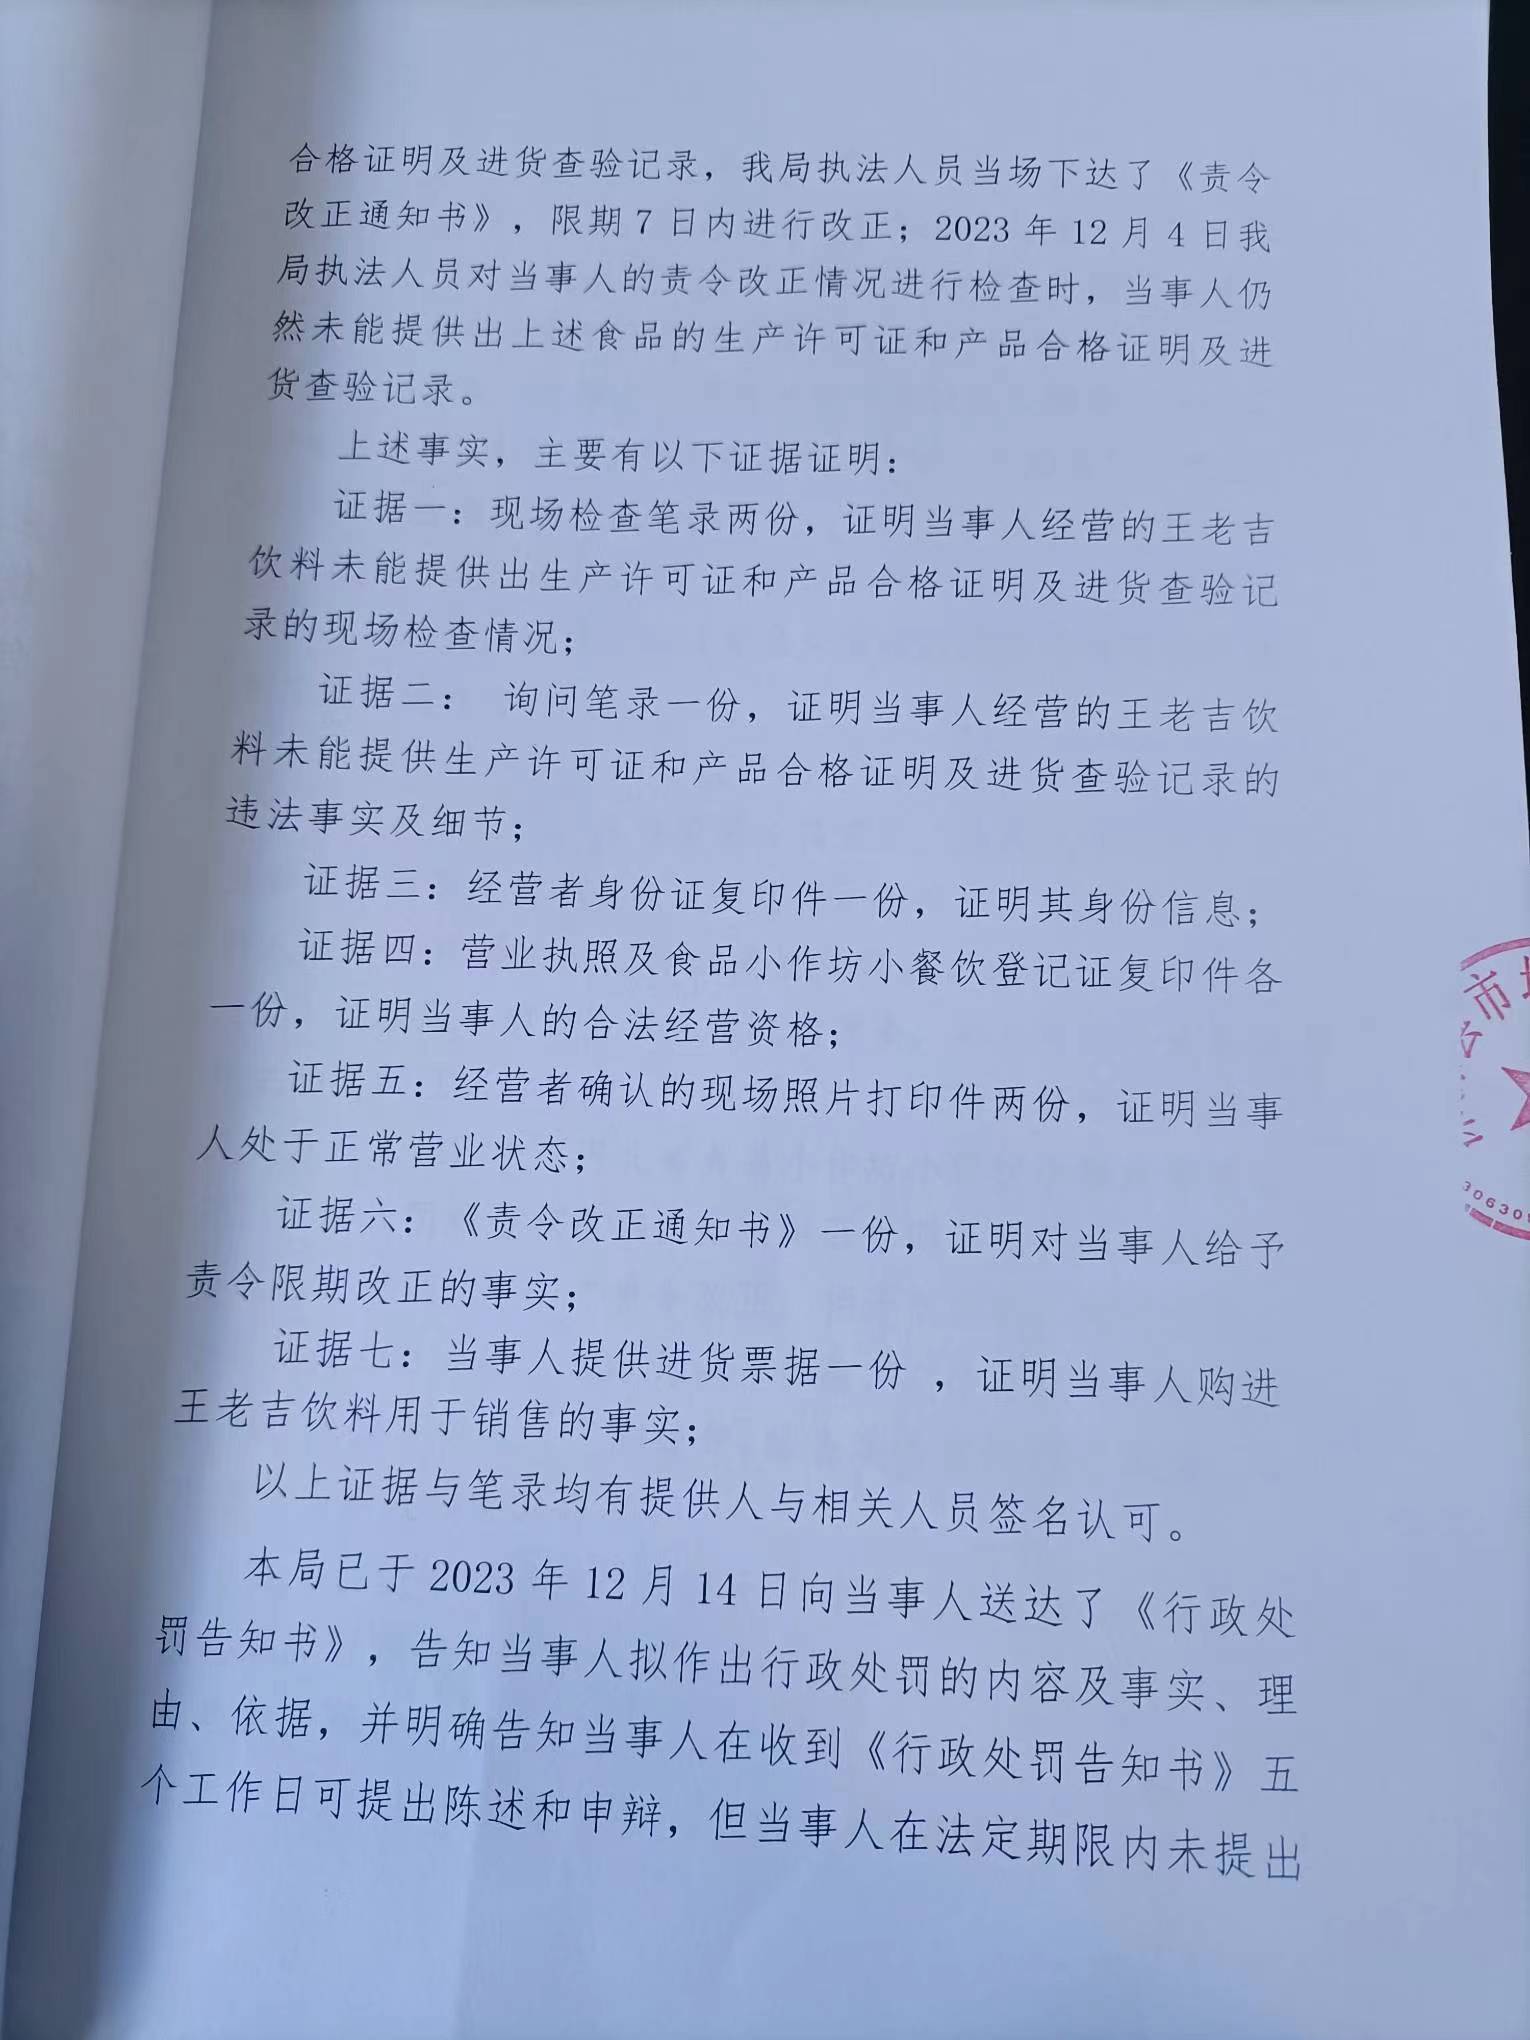 合格证明及进货查验记录，我局执法人员当场下达了《责令
改正通知书》，限期7日内进行改正；2023年12月4日我
局执法人员对当事人的责令改正情况进行检查时，当事人仍
然未能提供出上述食品的生产许可证和产品合格证明及进
货查验记录。
上述事实，主要有以下证据证明：
证据一：现场检查笔录两份，证明当事人经营的王老吉
饮料未能提供出生产许可证和产品合格证明及进货查验记
录的现场检查情况；
证据二： 询问笔录一份，证明当事人经营的王老吉饮
料未能提供生产许可证和产品合格证明及进货查验记录的
违法事实及细节；
证据三：经营者身份证复印件一份，证明其身份信息；
证据四：营业执照及食品小作坊小餐饮登记证复印件各
一份，证明当事人的合法经营资格；
证据五：经营者确认的现场照片打印件两份，证明当事
人处于正常营业状态；
证据六：《责令改正通知书》一份，证明对当事人给予
责令限期改正的事实；
证据七：当事人提供进货票据一份 ，证明当事人购进
王老吉饮料用于销售的事实；
以上证据与笔录均有提供人与相关人员签名认可。
本局已于2023年12月14日向当事人送达了《行政处
罚告知书》，告知当事人拟作出行政处罚的内容及事实、理
由、依据，并明确告知当事人在收到《行政处罚告知书》五
个工作日可提出陈述和申辩，但当事人在法定期限内未提出
市